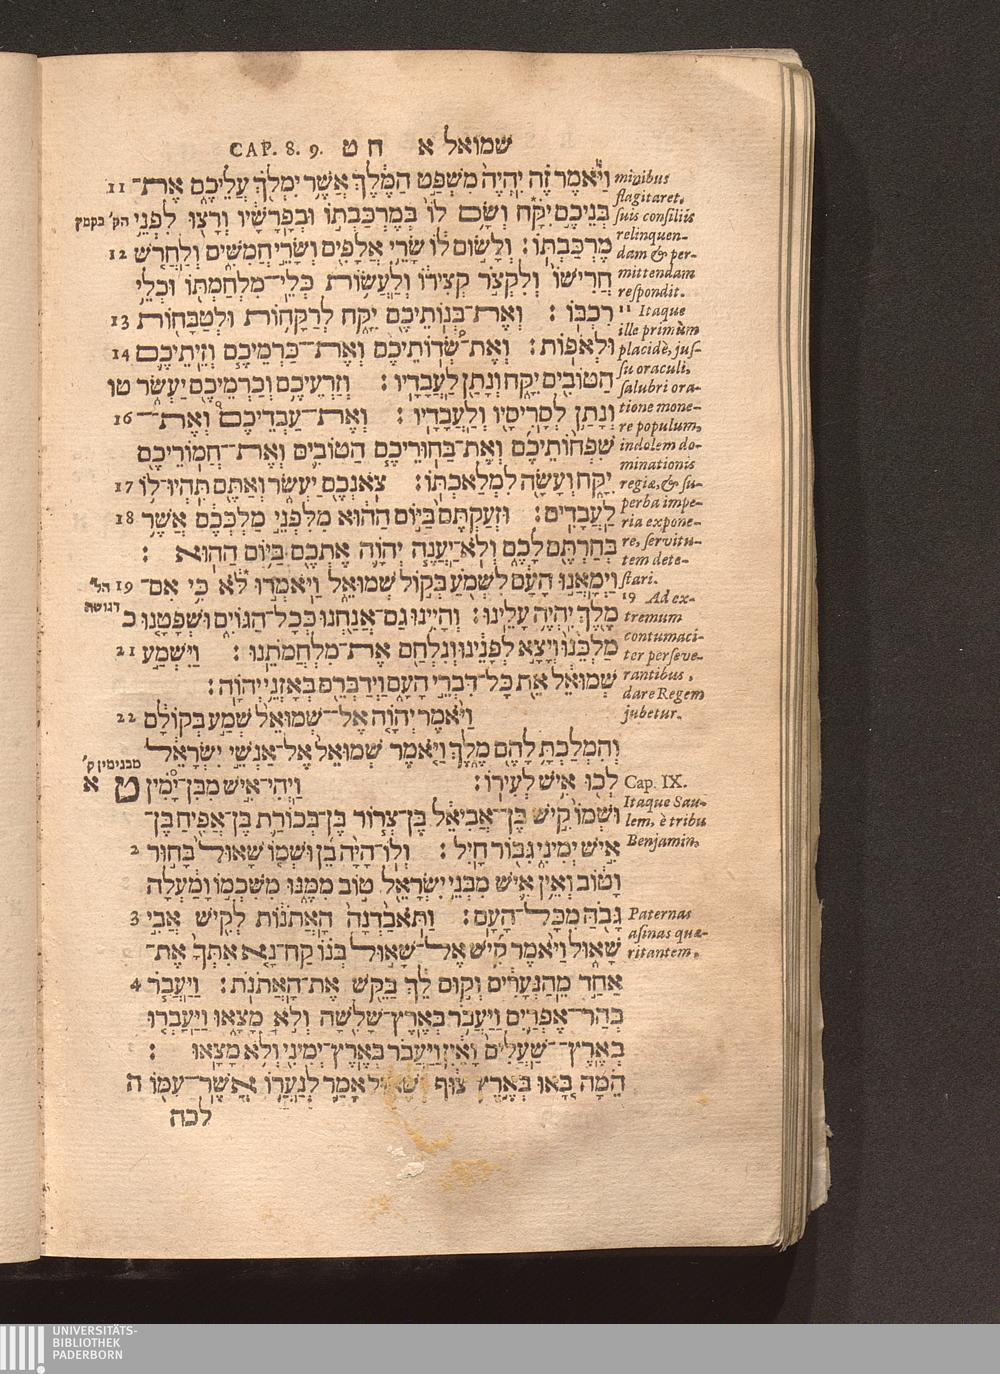 שמואל א ח ט CAP. 8. 9.
וַיֹּאמֶר זֶה יִֽהְיֶה מִשְׁפַּט הַמֶּלֶךְ אֲשֶׁר יִמְלֹךְ עֲלֵיכֶם אֶת־ 11
בְּנֵיכֶם יִקָּח וְשָׂם לוֹ בְּמֶרְכַּבְתּוֹ וּבְפָרָשָׁיו וְרָצוּ לִפְנֵי
הק׳ בקמץ
מֶרְכַּבְתּוֹ׃ וְלָשׂוּם לוֹ שָׂרֵי אֲלָפִים וְשָׂרֵי חֲמִשִּׁים וְלַחֲרֹשׁ 12
חֲרִישׁוֹ וְלִקְצֹר קְצִירוֹ וְלַעֲשׂוֹת כְּלֵי־מִלְחַמְתּוֹ וּכְלֵי
רִכְבּוֹ׃ וְאֶת־בְּנוֹתֵיכֶם יִקָּח לְרַקָּחוֹת וּלְטַבָּחוֹת 13
וּלְאֹפוֹת׃ וְאֶת־שְׂדוֹתֵיכֶם וְאֶת־כַּרְמֵיכֶם וְזֵיתֵיכֶם 14
הַטּוֹבִים יִקָּח וְנָתַן לַעֲבָדָיו׃ וְזַרְעֵיכֶם וְכַרְמֵיכֶם יַעְשֹׂר טו
וְנָתַן לְסָרִיסָיו וְלַעֲבָדָיו׃ וְאֶת־עַבְדֵיכֶם וְאֶת־ 16
שִׁפְחוֹתֵיכֶם וְאֶת־בַּחוּרֵיכֶם הַטּוֹבִים וְאֶת־חֲמוֹרֵיכֶם
יִקָּח וְעָשָׂה לִמְלַאכְתּוֹ׃ צֹאנְכֶם יַעְשֹׂר וְאַתֶּם תִּהְיוּ־לוֹ 17
לַעֲבָדִים׃ וּזְעַקְתֶּם בַּיּוֹם הַהוּא מִלִּפְנֵי מַלְכְּכֶם אֲשֶׁר 18
בְּחַרְתֶּם לָכֶם וְלֹא־יַעֲנֶה יְהֹוָה אֶתְכֶם בַּיּוֹם הַהוּא׃
וַיְמָאֲנוּ הָעָם לִשְׁמֹעַ בְּקוֹל שְׁמוּאֵל וַיֹּאמְרוּ לֹּא כִּי אִם־ 19
הל׳ דגושה
מֶלֶךְ יִֽהְיֶה עָלֵינוּ׃ וְהָיִינוּ גַם־אֲנַחְנוּ כְּכָל־הַגּוֹיִם וּשְׁפָטָנוּ כ
מַלְכֵּנוּ וְיָצָא לְפָנֵינוּ וְנִלְחַם אֶת־מִלְחֲמֹתֵנוּ׃ וַיִּשְׁמַע 21
שְׁמוּאֵל אֵת כָּל־דִּבְרֵי הָעָם וַיְדַבְּרֵם בְּאָזְנֵי יְהֹוָה׃
וַיֹּאמֶר יְהֹוָה אֶל־שְׁמוּאֵל שְׁמַע בְּקוֹלָם 22
וְהִמְלַכְתָּ לָהֶם מֶלֶךְ וַיֹּאמֶר שְׁמוּאֵל אֶל־אַנְשֵׁי יִשְׂרָאֵל
לְכוּ אִישׁ לְעִירוֹ׃ וַיְהִי־אִישׁ מִבִּן־יָמִין ט א
מבנימין ק׳
וּשְׁמוֹ קִישׁ בֶּן־אֲבִיאֵל בֶּן־צְרוֹר בֶּן־בְּכוֹרַת בֶּן־אֲפִיחַ בֶּן־
אִישׁ יְמִינִי גִּבּוֹר חָיִל׃ וְלוֹ־הָיָה בֵן וּשְׁמוֹ שָׁאוּל בָּחוּר 2
וָטוֹב וְאֵין אִישׁ מִבְּנֵי יִשְׂרָאֵל טוֹב מִמֶּנּוּ מִשִּׁכְמוֹ וָמַעְלָה
גָּבֹהַּ מִכָּל־הָעָם׃ וַתֹּאבַדְנָה הָאֲתֹנוֹת לְקִישׁ אֲבִי 3
שָׁאוּל וַיֹּאמֶר קִישׁ אֶל־שָׁאוּל בְּנוֹ קַח־נָא אִתְּךָ אֶת־
אַחַד מֵהַנְּעָרִים וְקוּם לֵךְ בַּקֵּשׁ אֶת־הָאֲתֹנֹת׃ וַיַּעֲבֹר 4
בְּהַר־אֶפְרַיִם וַיַּעֲבֹר בְּאֶרֶץ־שָׁלִשָׁה וְלֹא מָצָאוּ וַיַּעַבְרוּ
בְאֶרֶץ־שַׁעֲלִים וָאַיִן וַיַּעֲבֹר בְּאֶרֶץ־יְמִינִי וְלֹא מָצָאוּ׃
הֵמָּה בָּאוּ בְּאֶרֶץ צוּף אָמַר לְנַעֲרוֹ אֲשֶׁר־עִמּוֹ ה
לכה
minibus
flagitaret,
suis consiliis
relinquen-
dam & per-
mittendam
respondit.
11 Itaque
ille primùm
placidè, jus-
su oraculi,
salubri ora-
tione mone-
re populum,
indolem do-
minationis
regiæ, & su-
perba impe-
ria expone-
re, servitu-
tem dete-
stari.
19 Ad ex-
tremum
contumaci-
ter perseve-
rantibus,
dare Regem
jubetur.
Cap. IX.
Itaque Sau-
lem, è tribu
Benjamin,
Paternas
asinas quæ-
ritantem,
UNIVERSITÄTS-
BIBLIOTHEK
PADERBORN